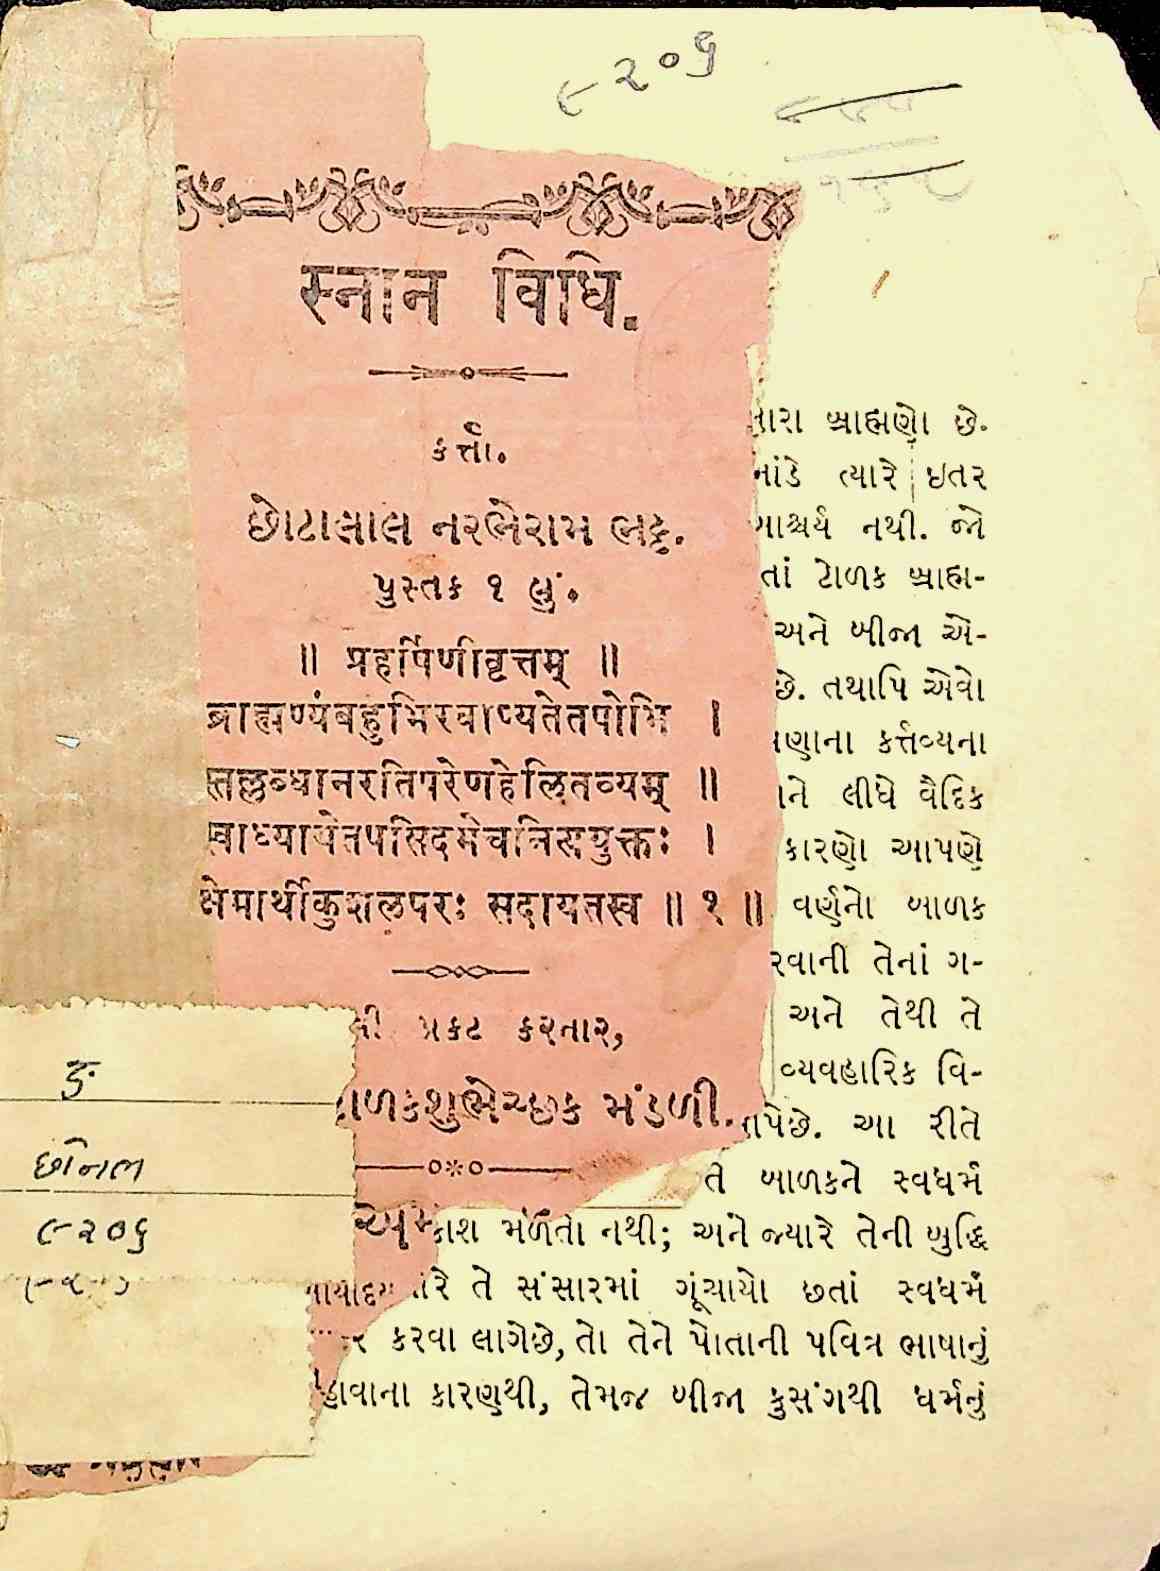 ૯૨૦૬
स्नान विधि.
કર્ત્તા.
છોટાલાલ નરભેરામ ભટ્ટ.
પુસ્તક ૧ લું.
॥ प्रहर्षिणीवृत्तम् ॥
ब्राह्मण्यंबहुभिरवाप्यतेतपोभि ।
स्तल्लब्धानरतिपरेणहेलितव्यम् ॥
स्वाध्यायेतपसिदमेचनित्ययुक्तः ।
क्षेमार्थीकुशलपरः सदायतस्व ॥ १ ॥
પ્રકટ કરનાર,
બાળકશુભેચ્છક મંડળી.
બ્રાહ્મણો છે.
ત્યારે ઇતર
નથી. જો
ટોળક બ્રાહ્મ-
અને બીજા એ-
છે. તથાપિ એવો
કર્ત્તવ્યના
લીધે વૈદિક
કારણો આપણે
વર્ણનો બાળક
તેનાં ગ-
અને તેથી તે
વ્યવહારિક વિ-
આ રીતે
તે બાળકને સ્વધર્મ
મળતો નથી; અને જ્યારે તેની બુદ્ધિ
તે સંસારમાં ગૂંચાયો છતાં સ્વધર્મ
કરવા લાગેછે, તો તેને પોતાની પવિત્ર ભાષાનું
કારણથી, તેમજ બીજા કુસંગથી ધર્મનું
ઙ
છોનભ
૯૨૦૬